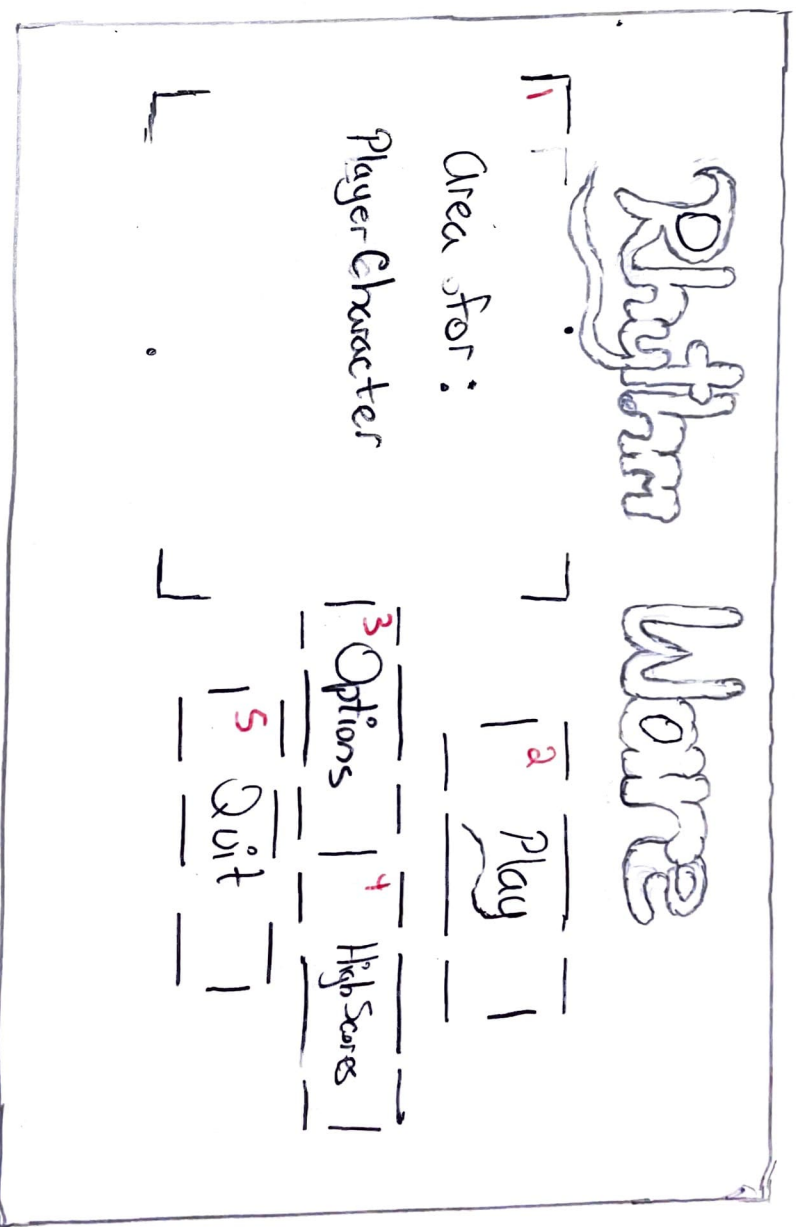 Rhythm Ware
1
area for:
Player Character
2
Play
3
Options
4
High Scores
5
Quit